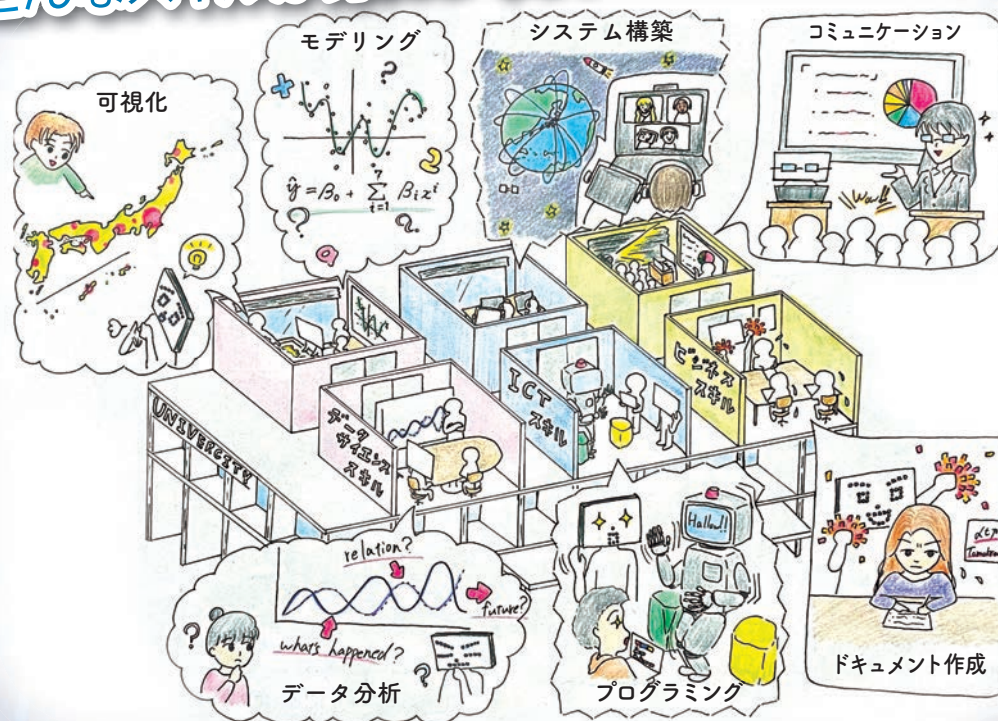 可視化
モデリング
ŷ = β₀ + Σ βᵢxⁱ
7
i=1
システム構築
コミュニケーション
Wow!!
UNIVERCITY
データ
サイエンス
スキル
ICT
スキル
ビジネス
スキル
relation?
future?
what's happened?
データ分析
Hallow!!
プログラミング
ドキュメント作成